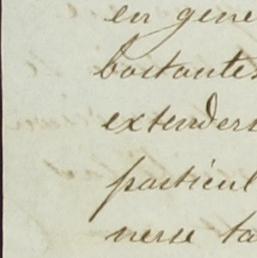 en gene
bastantes
extenders
particul
nerse ta